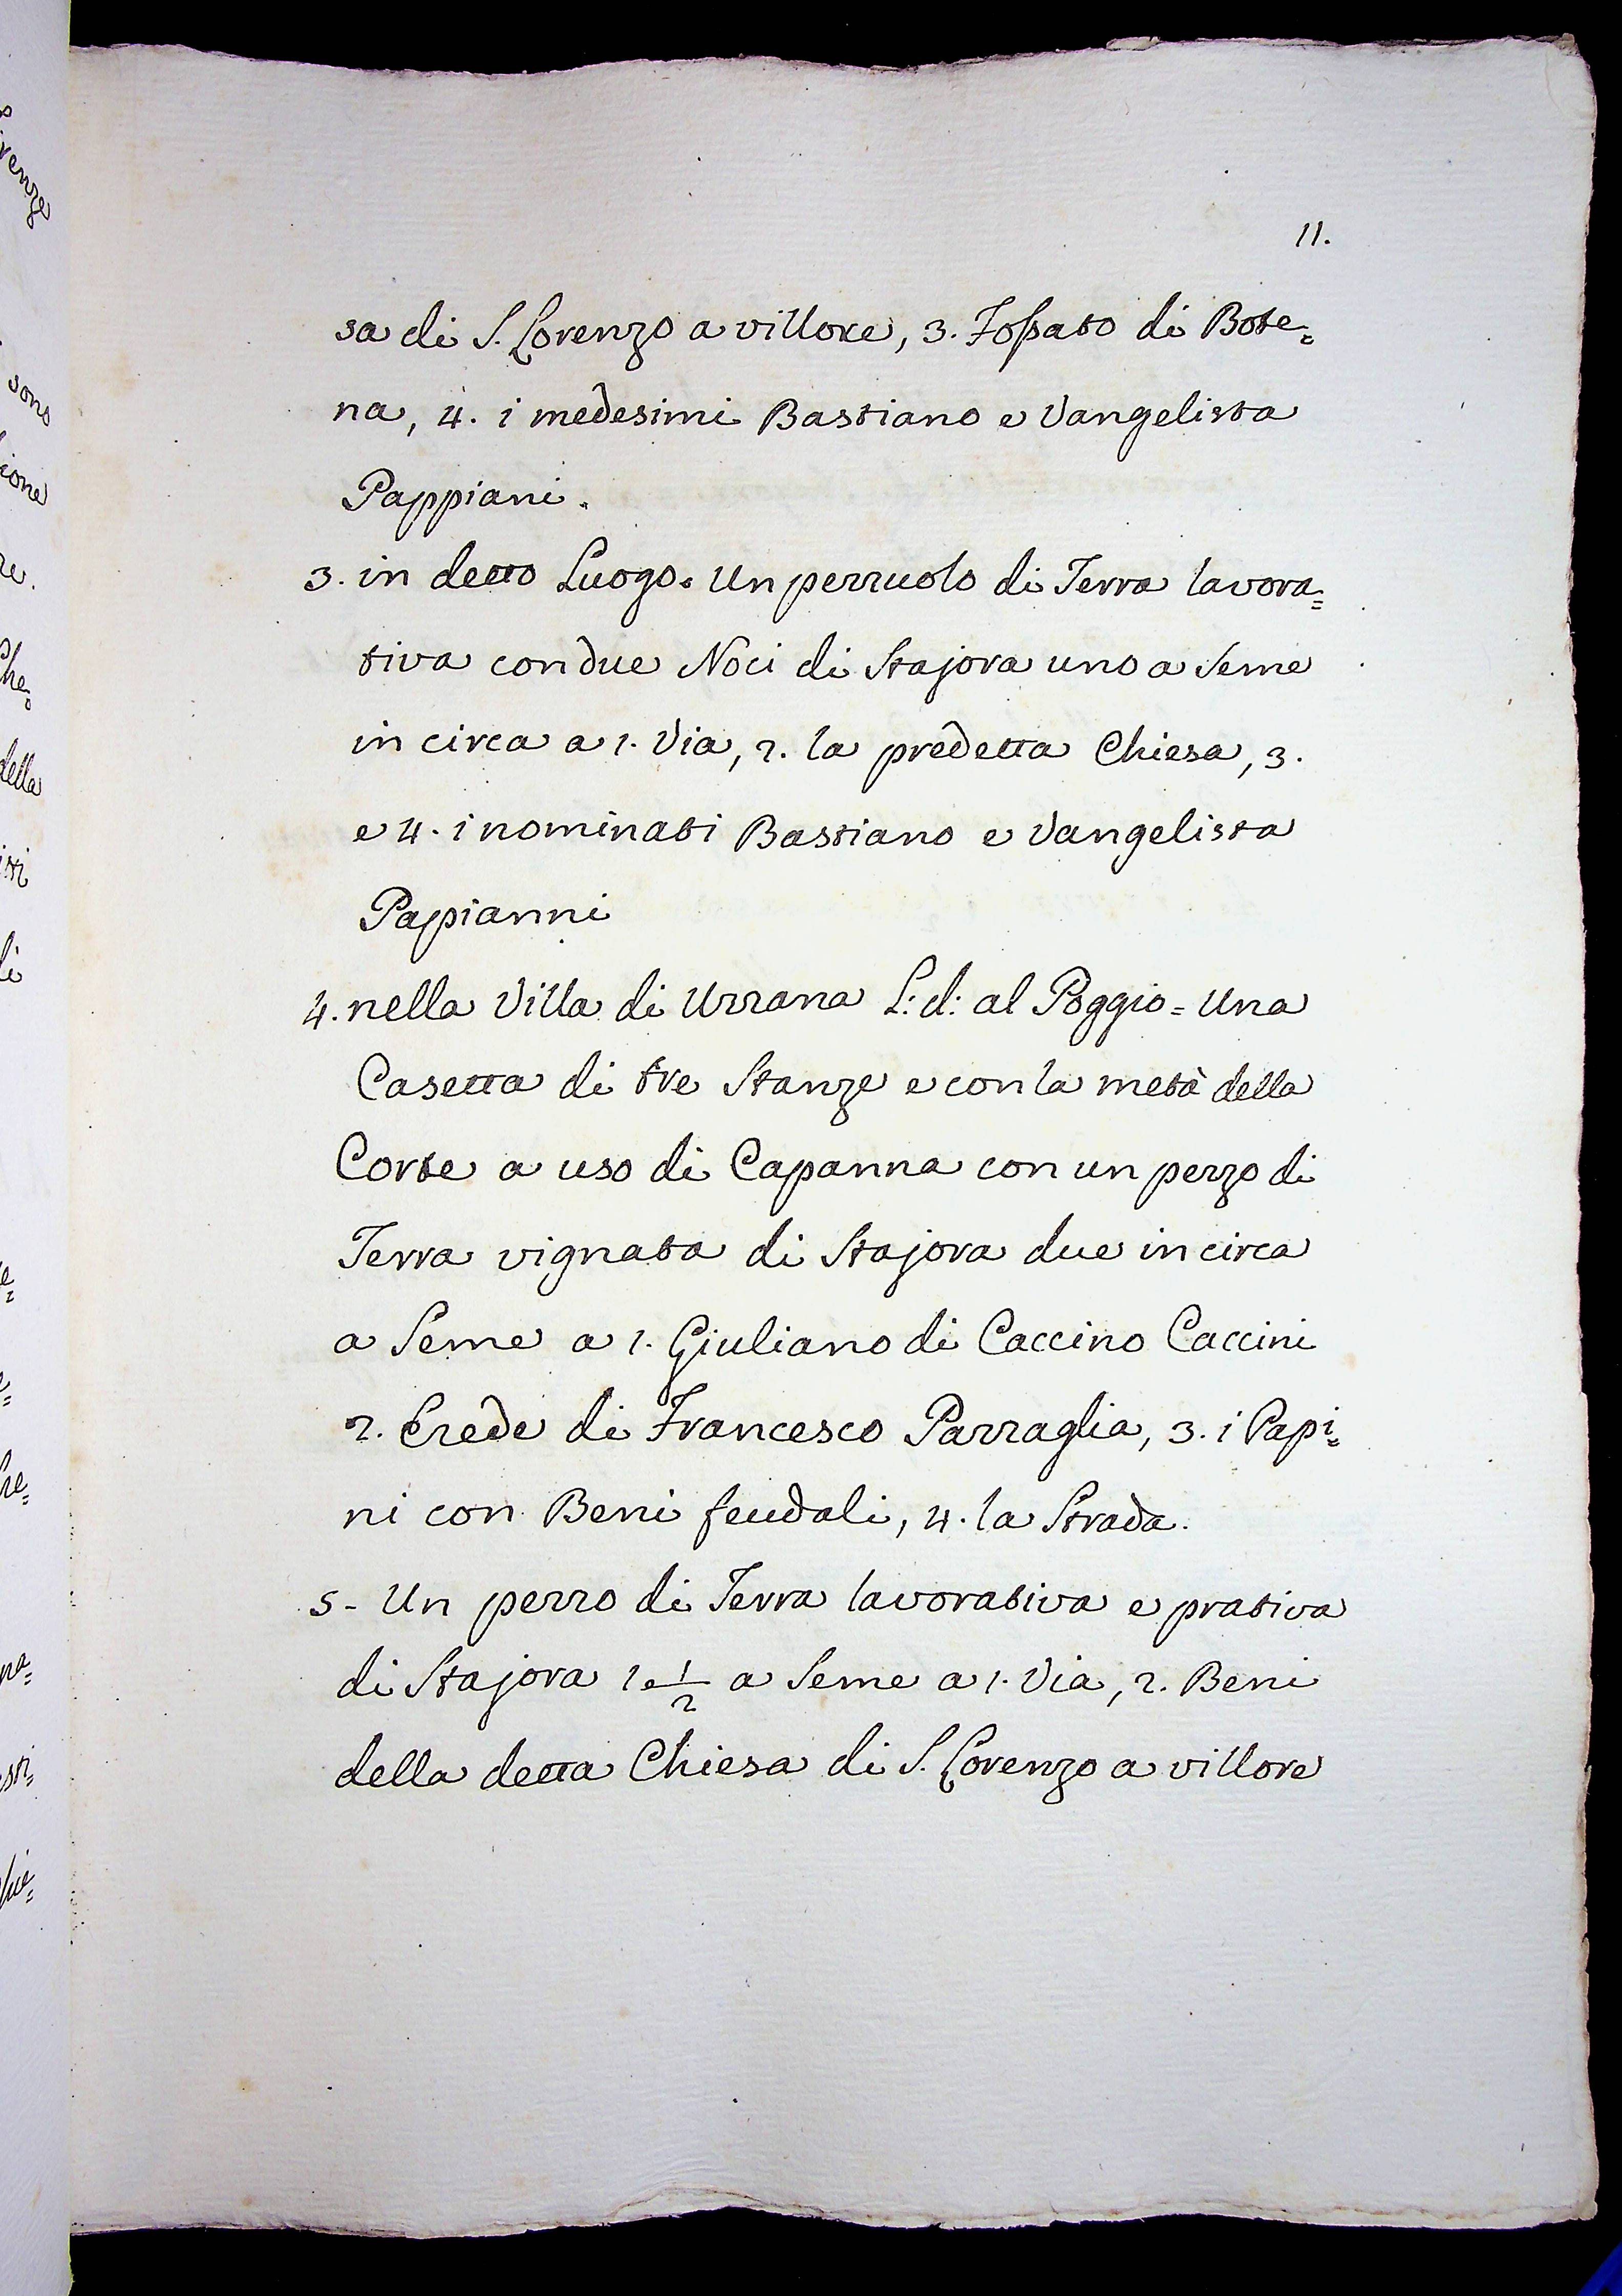 11.
sa di S. Lorenzo a villore, 3. Fossato di Bote=
na, 4. i medesimi Bastiano e Vangelista
Pappiani.
3. in detto Luogo = Un pezzuolo di Terra lavora=
tiva con due Noci di Stajora uno a Seme
in circa a 1. Via, 2. la predetta Chiesa, 3.
e 4. i nominati Bastiano e Vangelista
Papianni
4. nella Villa di Uzzana L: d: al Poggio = Una
Casetta di tre Stanze e con la metà della
Corte a uso di Capanna con un pezzo di
Terra vignata di Stajora due in circa
a Seme a 1. Giuliano di Caccino Caccini
2. Erede di Francesco Pazzaglia, 3. i Papi=
ni con Beni feudali, 4. la Strada.
5 - Un pezzo di Terra lavorativa e prativa
di Stajora 1 e 1/2 a Seme a 1. Via, 2. Beni
della detta Chiesa di S. Lorenzo a villore
sono
della